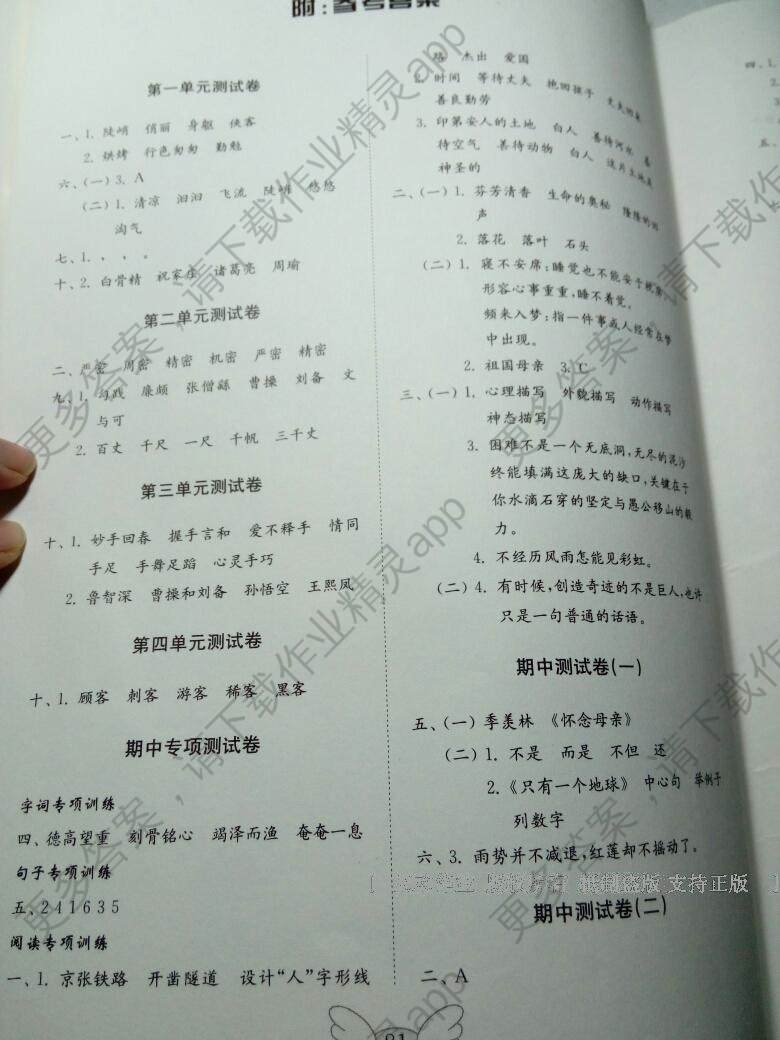 附:参考答案
第一单元测试卷
一、1. 陡峭 俏丽 身躯 侠客
2. 烘烤 行色匆匆 勤勉
六、(一)3. A
(二)1. 清凉 汩汩 飞流 陡峭 悠悠
淘气
七、1. 、 . 。
十、2. 白骨精 祝家庄 诸葛亮 周瑜
第二单元测试卷
二、严密 周密 精密 机密 严密 精密
九、1. 勾践 廉颇 张僧繇 曹操 刘备 文
与可
2. 百丈 千尺 一尺 千帆 三千丈
第三单元测试卷
十、1. 妙手回春 握手言和 爱不释手 情同
手足 手舞足蹈 心灵手巧
2. 鲁智深 曹操和刘备 孙悟空 王熙凤
第四单元测试卷
十、1. 顾客 刺客 游客 稀客 黑客
期中专项测试卷
字词专项训练
四、德高望重 刻骨铭心 竭泽而渔 奄奄一息
句子专项训练
五、2 4 1 6 3 5
阅读专项训练
一、1. 京张铁路 开凿隧道 设计“人”字形线
路 杰出 爱国
2. 时间 等待丈夫 抱回孩子
善良勤劳
3. 印第安人的土地 白人 善待河水 善
待空气 善待动物 白人 这片土地是
神圣的
二、(一)1. 芬芳清香 生命的奥秘 隆隆的回
声
2. 落花 落叶 石头
(二)1. 寝不安席:睡觉也不能安于枕席
形容心事重重,睡不着觉。
频来入梦:指一件事或人经常在梦
中出现。
2. 祖国母亲 3. C
三、(一)1. 心理描写 外貌描写 动作描写
神态描写
3. 困难不是一个无底洞,无尽的泥沙
终能填满这庞大的缺口,关键在于
你水滴石穿的坚定与愚公移山的毅
力。
4. 不经历风雨怎能见彩虹。
(二)4. 有时候,创造奇迹的不是巨人,也许
只是一句普通的话语。
期中测试卷(一)
五、(一)季羡林 《怀念母亲》
(二)1. 不是 而是 不但 还
2.《只有一个地球》 中心句 举例子
列数字
六、3. 雨势并不减退,红莲却不摇动了。
抵制盗版 支持正版
期中测试卷(二)
二、A
91
四、1.
2.
五、
更多答案,请下载作业精灵app
更多答案,请下载作业精灵app
更多答案,请下载作业精灵app
更多答案,请下载作业精灵app